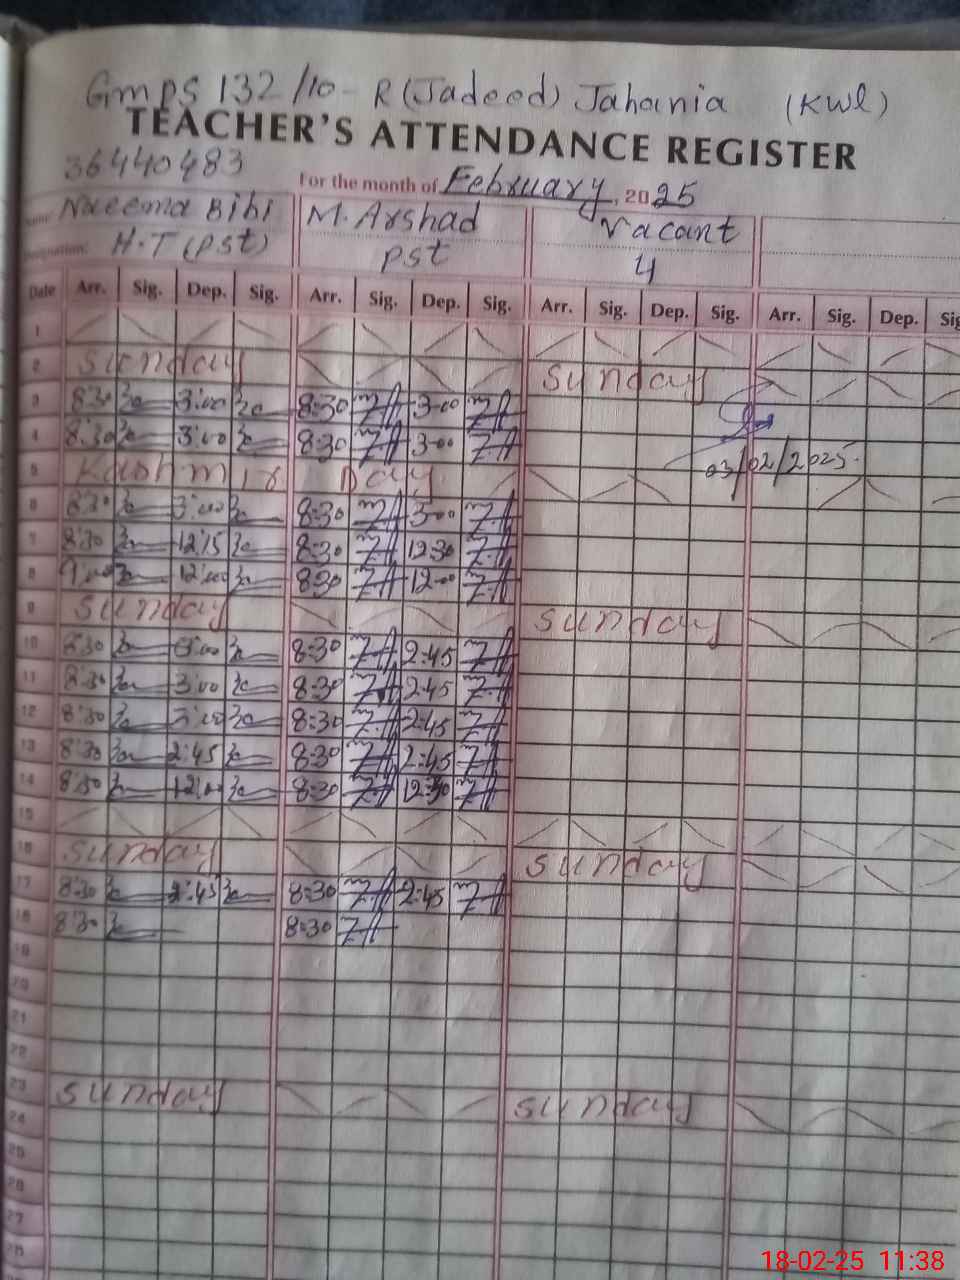 GMPS 132/10-R (Jadeed) Jahania (KWL)
TEACHER'S ATTENDANCE REGISTER
36440483
For the month of February, 2025
Name: Naeema Bibi M. Arshad Vacant
Designation: H.T (pst) pst 4
Date Arr. Sig. Dep. Sig. Arr. Sig. Dep. Sig. Arr. Sig. Dep. Sig. Arr. Sig. Dep. Sig
1
2 Sunday Sunday
3 8:30 3:00 8:30 3-00
4 8:30 3:00 8:30 3-00
03/02/2025
5 Kashmir Day
6 8:30 3:00 8:30 3-00
7 8:30 12:15 8:30 12:30
8 9:00 12:00 8:30 12-00
9 Sunday Sunday
10 8:30 3:00 8:30 2:45
11 8:30 3:00 8:30 2:45
12 8:30 3:00 8:30 2:45
13 8:30 2:45 8:30 2:45
14 8:30 12:00 8:30 12:30
15
16 Sunday Sunday
17 8:30 2:45 8:30 2:45
18 8:30 8:30
19
20
21
22
23 Sunday Sunday
24
25
26
27
28
18-02-25 11:38